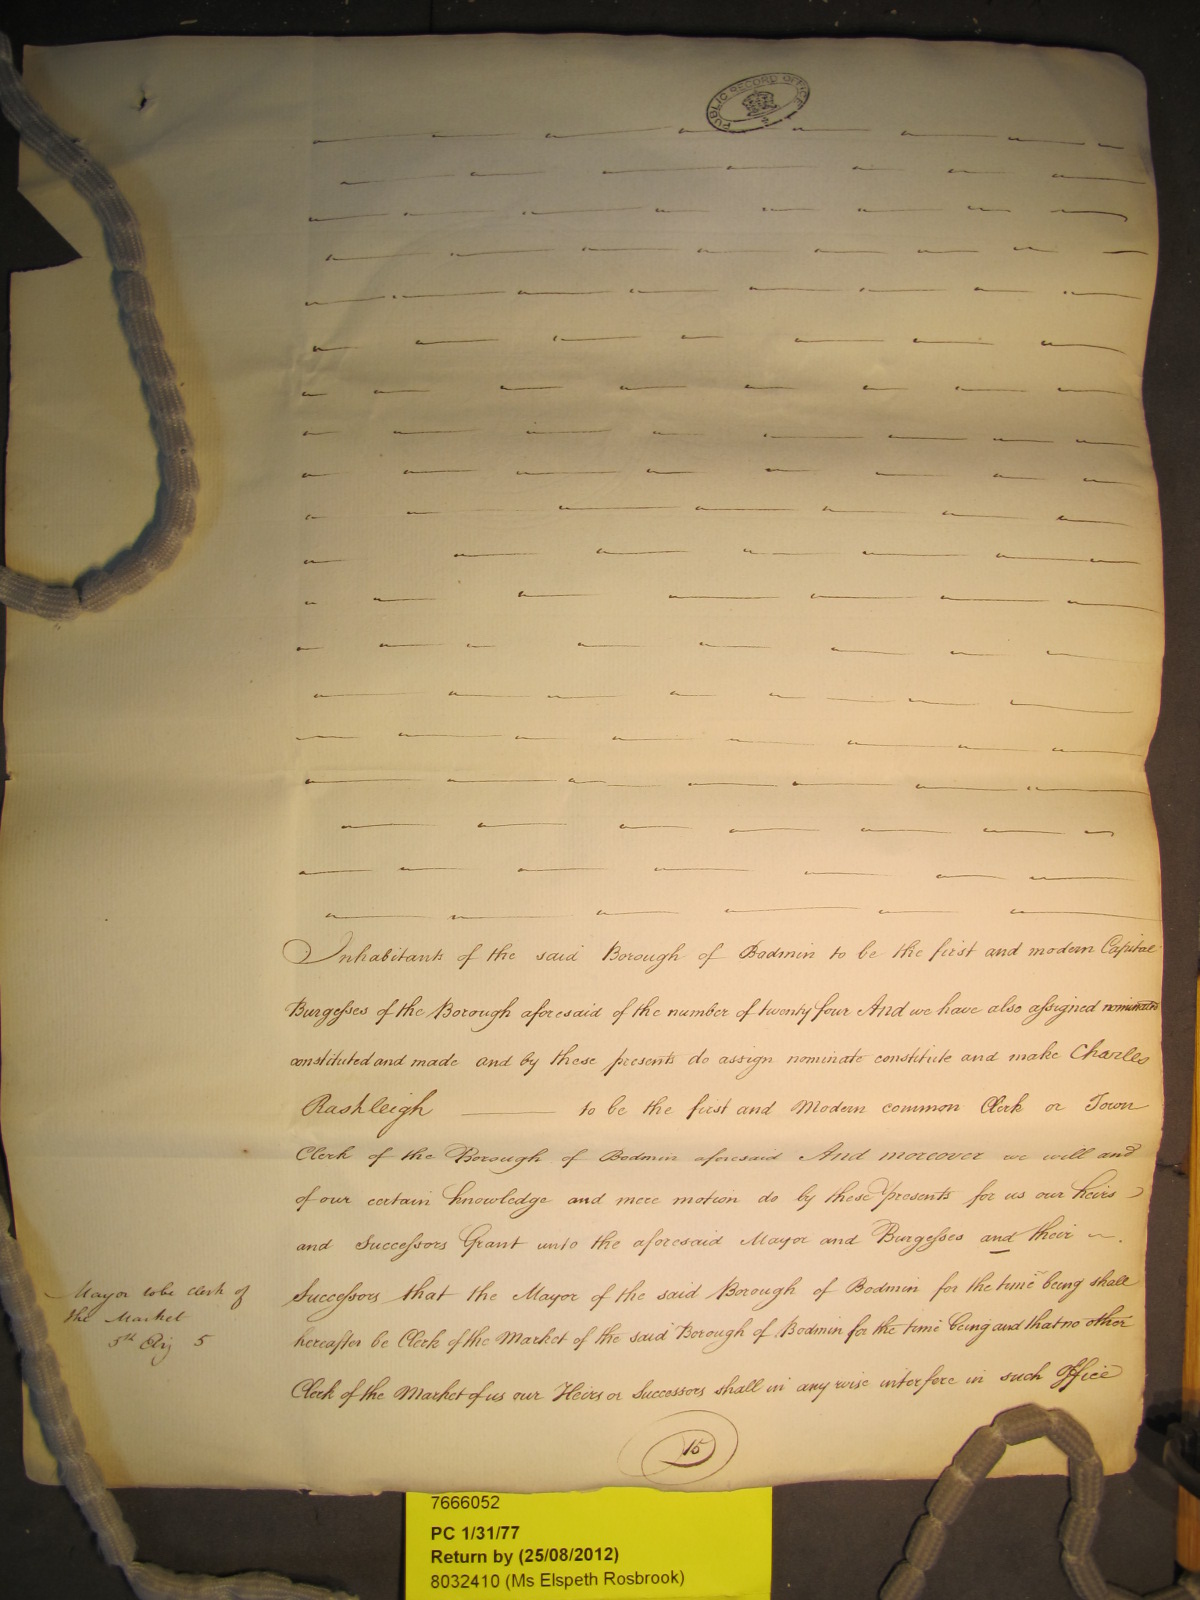 PUBLIC RECORD OFFICE
Inhabitants of the said Borough of Bodmin to be the first and modern Capital
Burgesses of the Borough aforesaid of the number of twenty four And we have also assigned nominated
constituted and made and by these presents do assign nominate constitute and make Charles
Rashleigh to be the first and Modern common Clerk or Town
Clerk of the Borough of Bodmin aforesaid And moreover we will and
of our certain knowledge and mere motion do by these presents for us our heirs
and Successors Grant unto the aforesaid Mayor and Burgesses and their
Successors that the Mayor of the said Borough of Bodmin for the time being shall
hereafter be Clerk of the Market of the said Borough of Bodmin for the time being and that no other
Clerk of the Market of us our Heirs or Successors shall in any wise interfere in such Office
Mayor to be Clerk of
the Market
5th 5
15
7666052
PC 1/31/77
Return by (25/08/2012)
8032410 (Ms Elspeth Rosbrook)